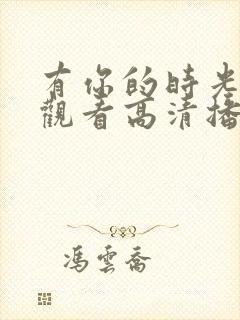 有你的時光
觀看高清播
馮雲喬